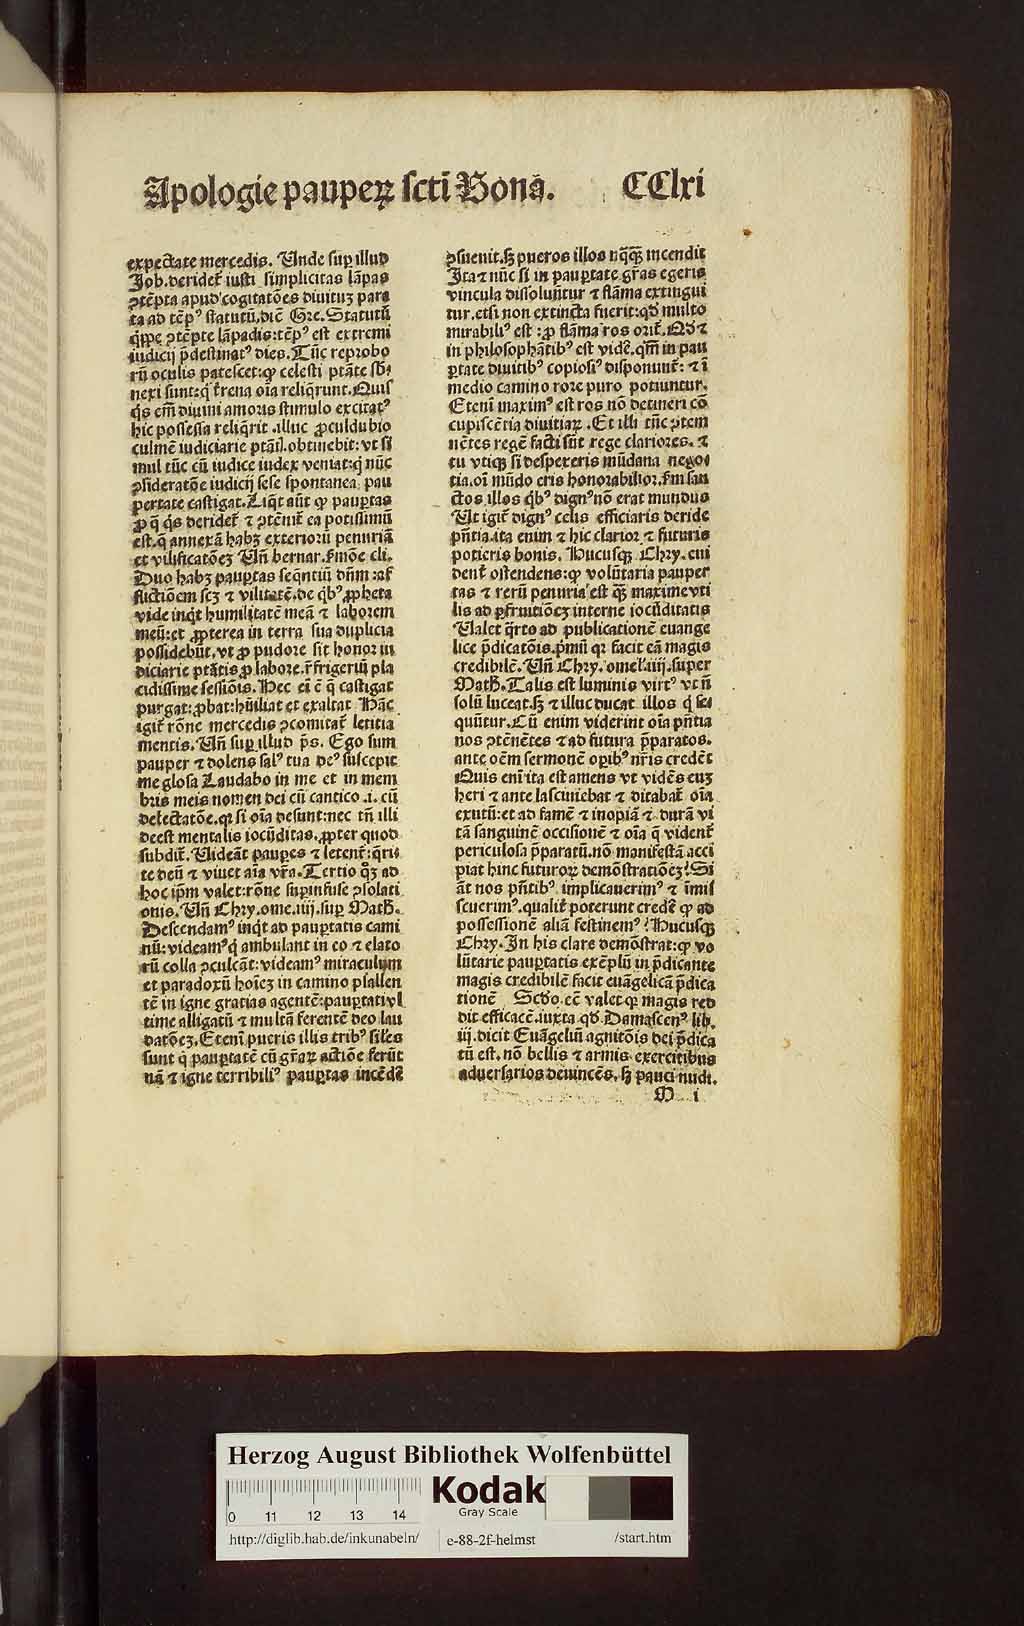 Apologie pauperꝝ scti Bonā. CClxi
expectate mercedis. Unde sup illud
Job. deridet̄ iusti simplicitas lāpas
ꝯtēpta apud cogitatōes diuitūꝫ para
ta ad tēpꝰ statutū. diē Gre. Statutū
q̄ppe ꝯtēpte lāpadis: tēpꝰ est extremi
iudicij p̄destinatꝰ dies. Tūc reprobo
rū oculis patescet: ꝙ celesti ptāte sb̄
nexi sunt: q̄ t̄rena oīa reliq̄runt. Quis
q̄s em̄ diuini amoris stimulo excitatꝰ
hic possessa reliq̄rit. illuc ꝓculdubio
culmē iudiciarie ptāl. obtinebit: vt si
mul tūc cū iudice iudex veniat: q̄ nūc
ꝯsideratōe iudicij sese spontanea pau
pertate castigat. Liq̄t aūt ꝙ pauꝑtas
ꝓ q̄ q̄s deridet̄ ⁊ ꝯtēnit̄ ea potissimū
est. q̄ annexā habꝫ exterioꝛū penuriā
et vilificatōeꝫ Uñ bernar. f̄mōe cli.
Duo habꝫ pauꝑtas seq̄ntiū dn̄m: af
flictiōem scꝫ ⁊ vilitatē. de q̄bꝰ ꝓpheta
vide inq̄t humilitatē meā ⁊ laborem
meū: et ꝓpterea in terra sua duplicia
possidebūt. vt ꝓ pudore sit honor iu
diciarie ptātis ꝓ labore. r̄frigeriū pla
cidissime sessiōis. Hec ei ē q̄ castigat
purgat: ꝓbat: hūiliat et exaltat Hāc
igit̄ rōne mercedis ꝯcomitat̄ letitia
mentis. Uñ sup illud p̄s. Ego sum
pauper ⁊ dolens salꝰ tua deꝰ suscepit
me glosa Laudabo in me et in mem
bris meis nomen dei cū cantico .i. cū
delectatōe. qꝛ si oīa desunt: nec tn̄ illi
deest mentalis iocūditas. ꝓpter quod
subdit̄. Uideāt pauꝑes ⁊ letent̄: q̄ri
te deū ⁊ viuet aīa vr̄a. Tertio qͦꝫ ad
hoc ip̄m valet: rōne suꝑinfuse ꝯsolati
onis. Uñ Chry. ome. iiij. sup Math̄.
Descendamꝰ inq̄t ad pauꝑtatis cami
nū: videamꝰ q̄ ambulant in eo ⁊ elato
rū colla ꝯculcāt: videamꝰ miraculum
et paradoxū hoīeꝫ in camino psallen
tē in igne gratias agentē: pauꝑtati vl
time alligatū ⁊ multā ferentē deo lau
datōeꝫ. Etenī pueris illis tribꝰ siłes
sunt q̄ pauꝑtatē cū gr̄aꝝ actiōe ferūt
nā ⁊ igne terribiliꝰ pauꝑtas incēde
ꝯsueuit. sꝫ pueros illos nq̄q̄ꝫ incendit
Ita ⁊ nūc si in pauꝑtate gr̄as egeris
vincula dissoluūtur ⁊ flāma extingui
tur. etsi non extincta fuerit: qd̄ multo
mirabiliꝰ est: ꝓ flāma ros orit̄. Qd̄ ⁊
in philosophātibꝰ est vidē. qm̄ in pau
ꝑtate diuitibꝰ copiosiꝰ disponunt̄: ⁊ ī
medio camino rore puro potiuntur.
Etenī maximꝰ est ros nō detineri cō
cupiscētia diuitiaꝝ. Et illi tūc ꝯtem
nētes regē facti sūt rege clariores. ⁊
tu vtiqꝫ si despexeris mūdana nego
tia. oī mūdo eris honorabilior. f̄m san
ctos illos q̄bꝰ dignꝰ nō erat mundus
Ut igit̄ dignꝰ celis efficiaris deride
pn̄tia. ita enim ⁊ hic clarior ⁊ futuris
potieris bonis. Hucusqꝫ Chry. eui
dent̄ ostendens: ꝙ volūtaria pauper
tas ⁊ rerū penuria est q̄ꝫ maxime vti
lis ad ꝑfruitiōeꝫ interne iocūditatis
Ualet q̄rto ad publicationē euange
lice p̄dicatōis. p̄mū qꝛ facit eā magis
credibilē. Uñ Chry. omel. iiij. super
Math̄. Talis est luminis virtꝰ vt ñ
solū luceat. sꝫ ⁊ illuc ducat illos q̄ se
quūtur. Cū enim viderint oīa pn̄tia
nos ꝯtēnētes ⁊ ad futura p̄paratos.
ante oēm sermonē oꝑibꝰ nr̄is credēt
Quis enī ita est amens vt vidēs euꝫ
heri ⁊ ante lasciuiebat ⁊ ditabat̄ oīa
exutū: et ad famē ⁊ inopiā ⁊ durā vi
tā sanguinē occisionē ⁊ oīa q̄ vident̄
periculosa p̄paratū. nō manifestā acci
piat hinc futuroꝝ demōstratiōeꝫ? Si
āt nos pn̄tibꝰ implicauerimꝰ ⁊ īmis
seuerimꝰ. qualit̄ poterunt credē ꝙ ad
possessionē aliā festinemꝰ? Hucusqꝫ
Chry. In his clare demōstrat: ꝙ vo
lūtarie pauꝑtatis exēplū in p̄dicante
magis credibilē facit euāgelicā p̄dica
tionē Scd̄o eē valet qꝛ magis red
dit efficacē. iuxta qd̄. Damascenꝰ lib.
iij. dicit Euāgeliū agnitōis dei p̄dica
tū est. nō bellis ⁊ armis exercitibus
aduersarios deuincēs. sꝫ pauci nudi.
M i
Herzog August Bibliothek Wolfenbüttel
0 11 12 13 14
Kodak
Gray Scale
http://diglib.hab.de/inkunabeln/ e-88-2f-helmst /start.htm